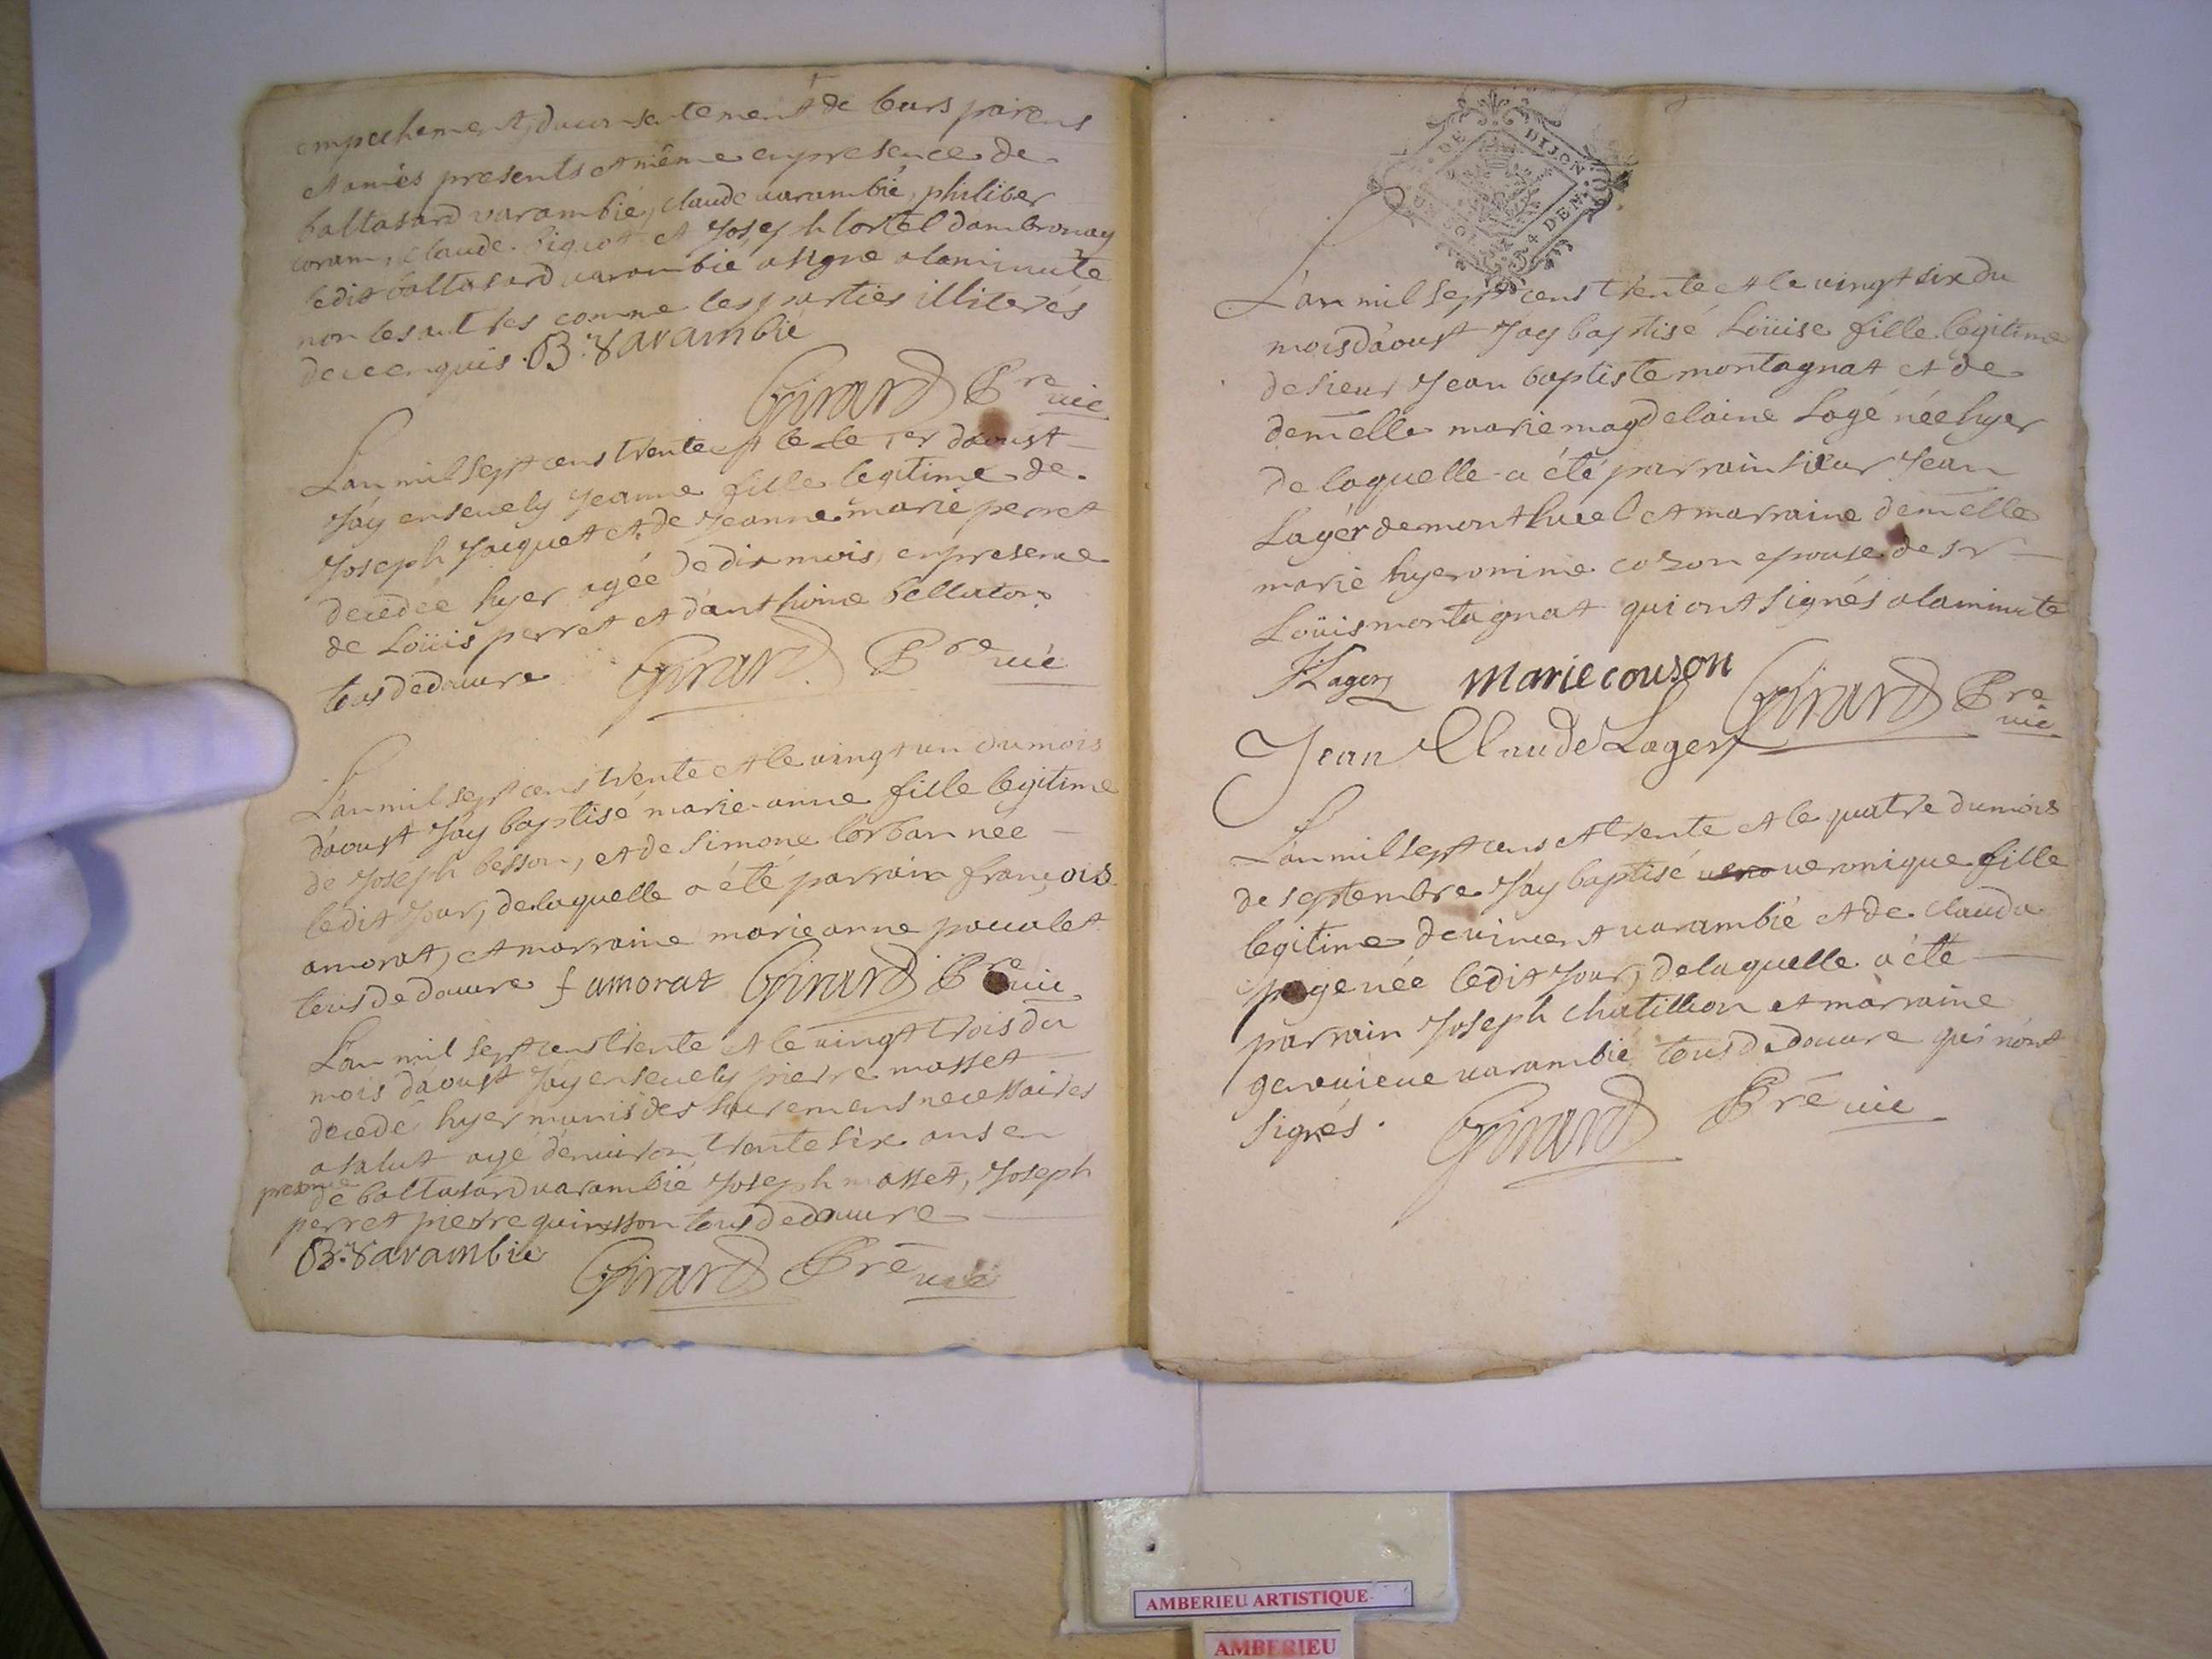 empechement, du consentement de leurs parens
et amies presents et même en presence de
baltasard varambié, claude varambié, philiber
coram, claude et Joseph lortel dambronay
ledit baltasard varambié a signe a la minute
non les autres comme les parties illiterés
de ce enquis. B. Varambié
Girard Pre vic
L'an mil sept cens trente et le le 1er d'aoust
J'ay ensevely Jeanne fille legitime de
Joseph Jacquet et de Jeanne marie perret
decedée hyer agée de dix mois, en presence
de Loüis perret et d'anthoine bellaton
tous de douvre Girard Pre vic
L'an mil sept cens trente et le vingt un du mois
d'aoust J'ay baptisé marie anne fille legitime
de Joseph besson, et de Simone lorban née
ledit Jour, de laquelle a été parrain françois
amorat, et marraine marie anne pouvalet
tous de douvre f amorat Girard Pre vic
L'an mil sept cens trente et le vingt trois du
mois d'aoust J'ay ensevely pierre masset
decedé hyer munis des sacremens necessaires
a salut agé d'environ trente six ans en
presence
de baltasard varambié Joseph masset, Joseph
perret pierre quinsson tous de douvre
B. Varambié Girard Pre vic
DE DIJON
UN SOL 4 DEN
L'an mil sept cens trente et le vingt six du
mois d'aoust J'ay baptisé Loüise fille legitime
de sieur Jean baptiste montagnat et de
demelle marie magdelaine Lagé née hyer
de laquelle a été parrain sieur Jean
Lager de monthuel et marraine demelle
marie hyeronime cozon epouse de sr
Loüis montagnat qui ont signés a la minute
JLager marie couson Girard Pre vic
Jean Claude Lager
L'an mil sept cens et trente et le quatre du mois
de septembre J'ay baptisé vero veronique fille
legitime de vincent varambié et de clauda
page née ledit Jour, de laquelle a été
parrain Joseph chatillion et marraine
genevieve varambié tous de douvre qui n'ont
signés. Girard Pre vic
AMBERIEU ARTISTIQUE
AMBERIEU